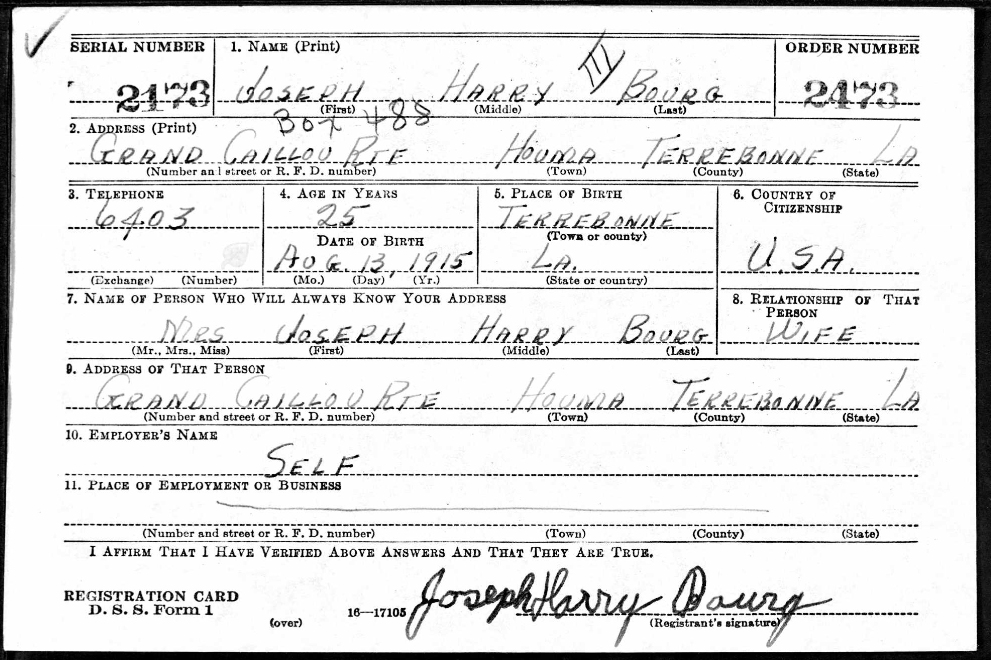 SERIAL NUMBER 1. NAME (Print) ORDER NUMBER
2173 JOSEPH HARRY III BOURG 2473
(First) (Middle) (Last)
BOX 488
2. ADDRESS (Print)
GRAND CAILLOU RTE HOUMA TERREBONNE LA
(Number and street or R. F. D. number) (Town) (County) (State)
3. TELEPHONE 4. AGE IN YEARS 5. PLACE OF BIRTH 6. COUNTRY OF CITIZENSHIP
6403 25 TERREBONNE
DATE OF BIRTH (Town or county)
AUG. 13, 1915 LA. U.S.A.
(Exchange) (Number) (Mo.) (Day) (Yr.) (State or country)
7. NAME OF PERSON WHO WILL ALWAYS KNOW YOUR ADDRESS 8. RELATIONSHIP OF THAT PERSON
MRS JOSEPH HARRY BOURG WIFE
(Mr., Mrs., Miss) (First) (Middle) (Last)
9. ADDRESS OF THAT PERSON
GRAND CAILLOU RTE HOUMA TERREBONNE LA
(Number and street or R. F. D. number) (Town) (County) (State)
10. EMPLOYER'S NAME
SELF
11. PLACE OF EMPLOYMENT OR BUSINESS
(Number and street or R. F. D. number) (Town) (County) (State)
I AFFIRM THAT I HAVE VERIFIED ABOVE ANSWERS AND THAT THEY ARE TRUE.
REGISTRATION CARD
D. S. S. Form 1 16—17105 Joseph Harry Bourg
(over) (Registrant's signature)